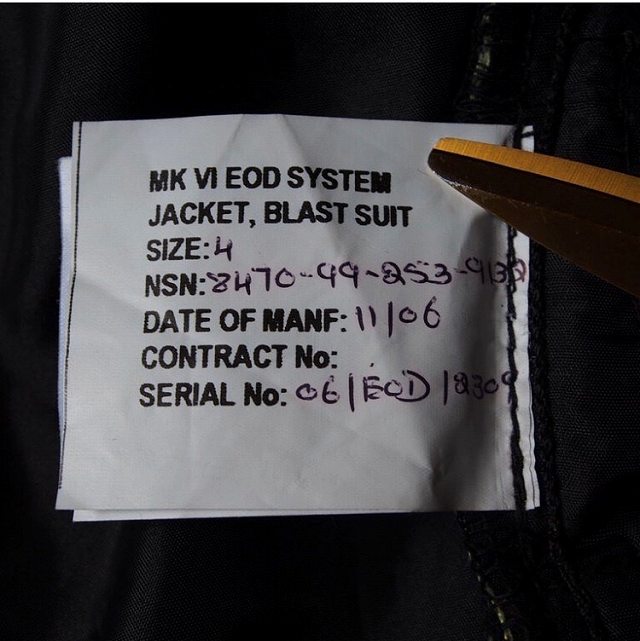 MK VI EOD SYSTEM
JACKET, BLAST SUIT
SIZE: 4
NSN: 8470-99-253-9132
DATE OF MANF: 11/06
CONTRACT No:
SERIAL No: 06/EOD/2309